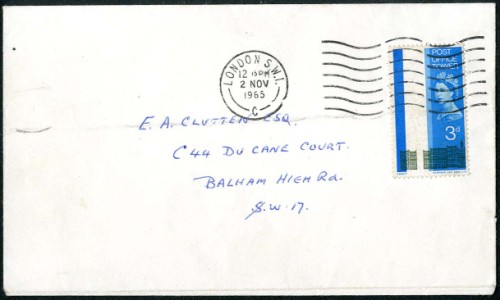 LONDON S.W.1.
12 15PM
2 NOV
1965
C
POST
OFFICE
TOWER
3d
E. A. CLUTTEN ESQ.
C44 DU CANE COURT.
BALHAM HIGH Rd.
S.W.17.